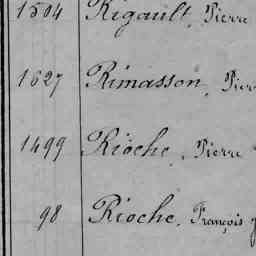 1504 Rigault, Pierre
1627 Rimasson, Pier
1499 Rioche, Pierre
98 Rioche, François